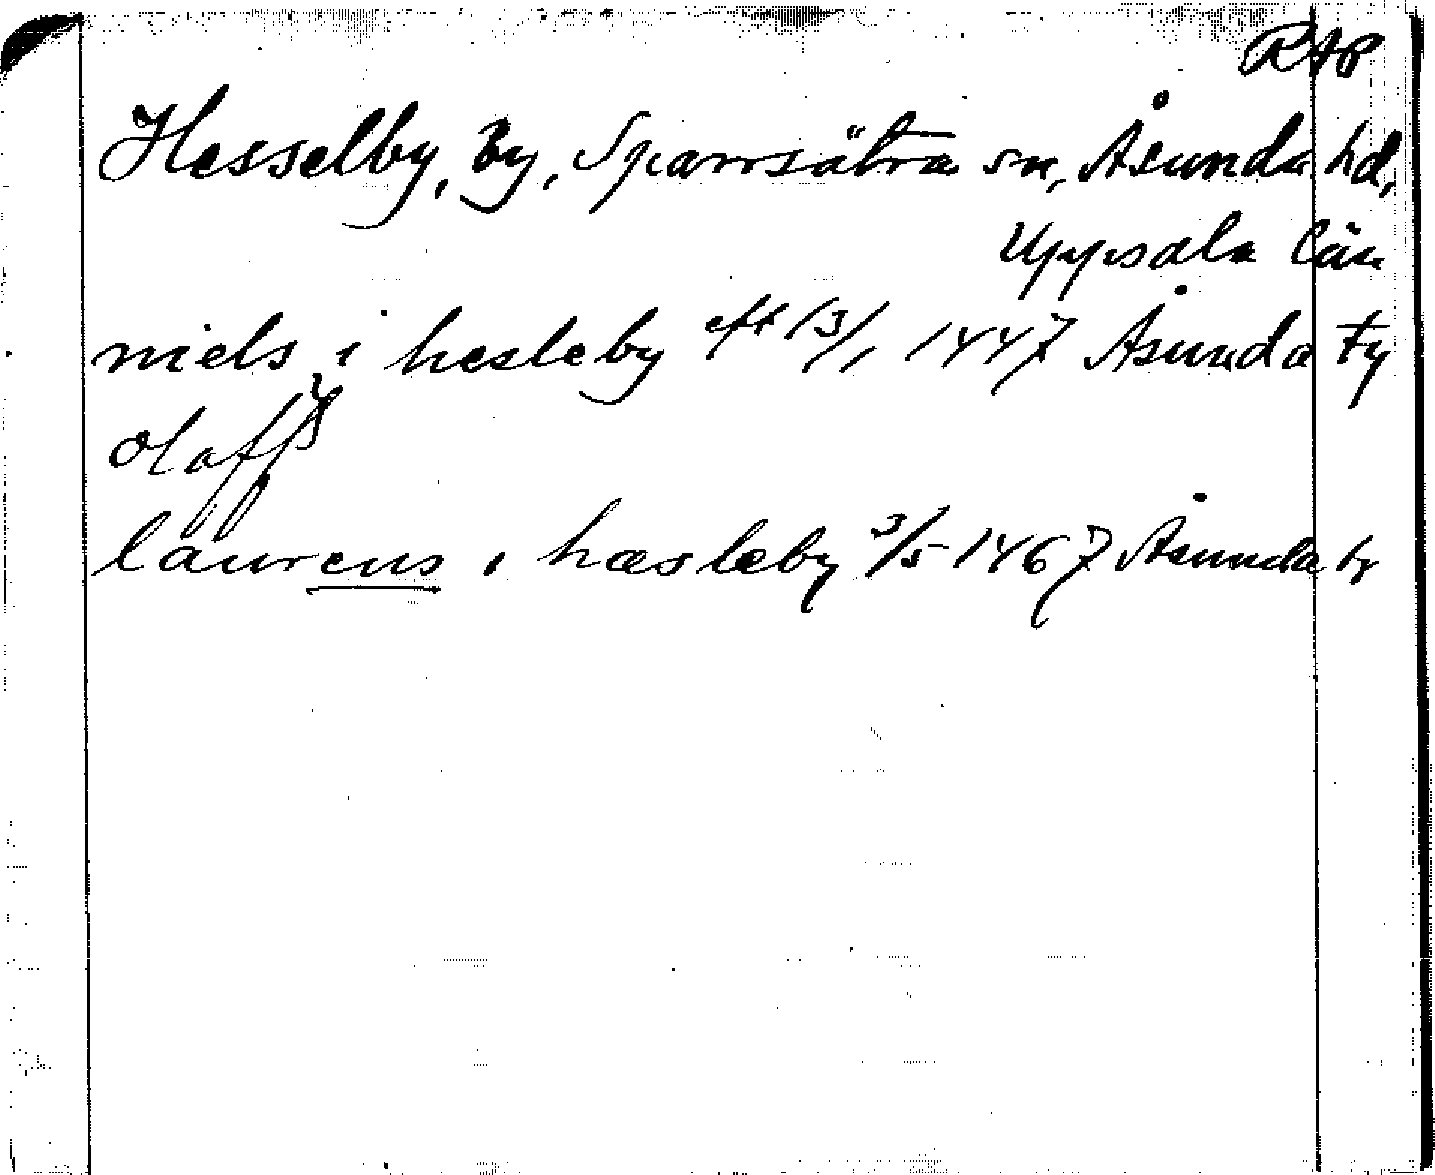 RAP
Hesselby, By, Sparrsätra sn, Åsunda hd,
Uppsala län
niels i hesleby eft 13/1 1447 Åsunda ty
olaff
laurens i hæsleby 3/5 1467 Åsunda ty